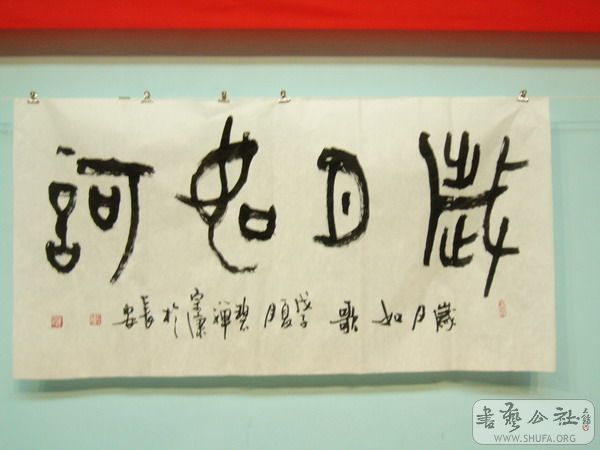 歲月如訶
歲月如歌 戊子夏月 禪 於長安
書藝公社
WWW.SHUFA.ORG